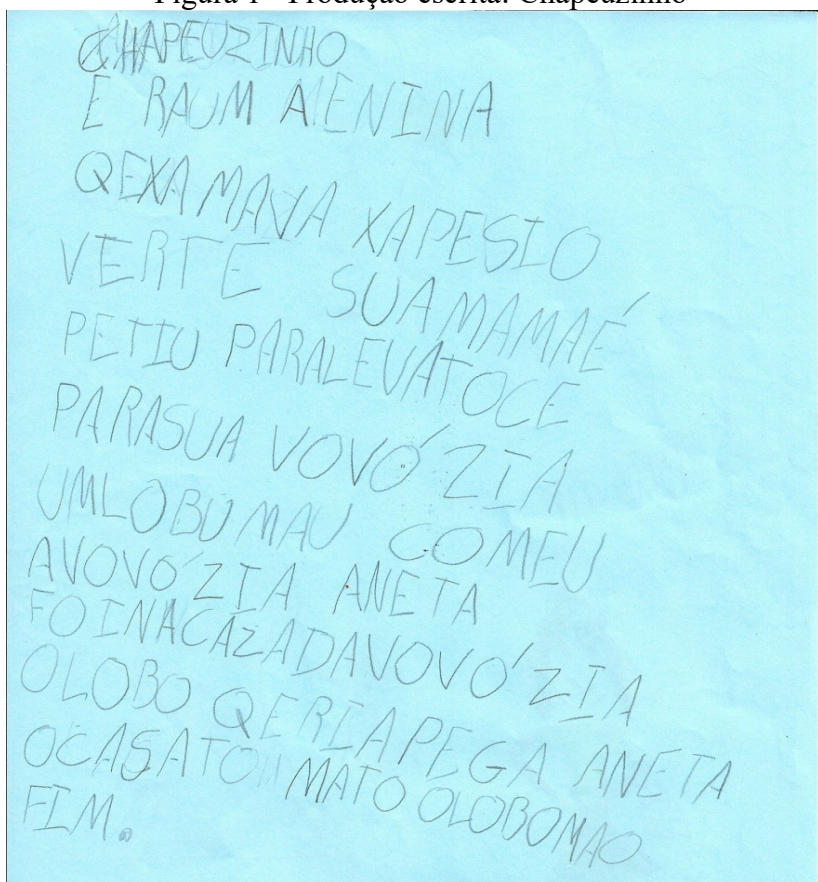 Figura 1 - Produção escrita: Chapeuzinho
CHAPEUZINHO
E RAUM AENINA
QEXA MAVA XAPESIO
VERTE SUAMAMAÉ
PETIU PARALEVATOCE
PARASUA VOVÓ ZIA
UMLOBU MAU COMEU
AVOVÓ ZIA ANETA
FOINACAZADAVOVÓ ZIA
OLOBO QERIAPEGA ANETA
OCASATO MATO OLOBOMAO
FIM.